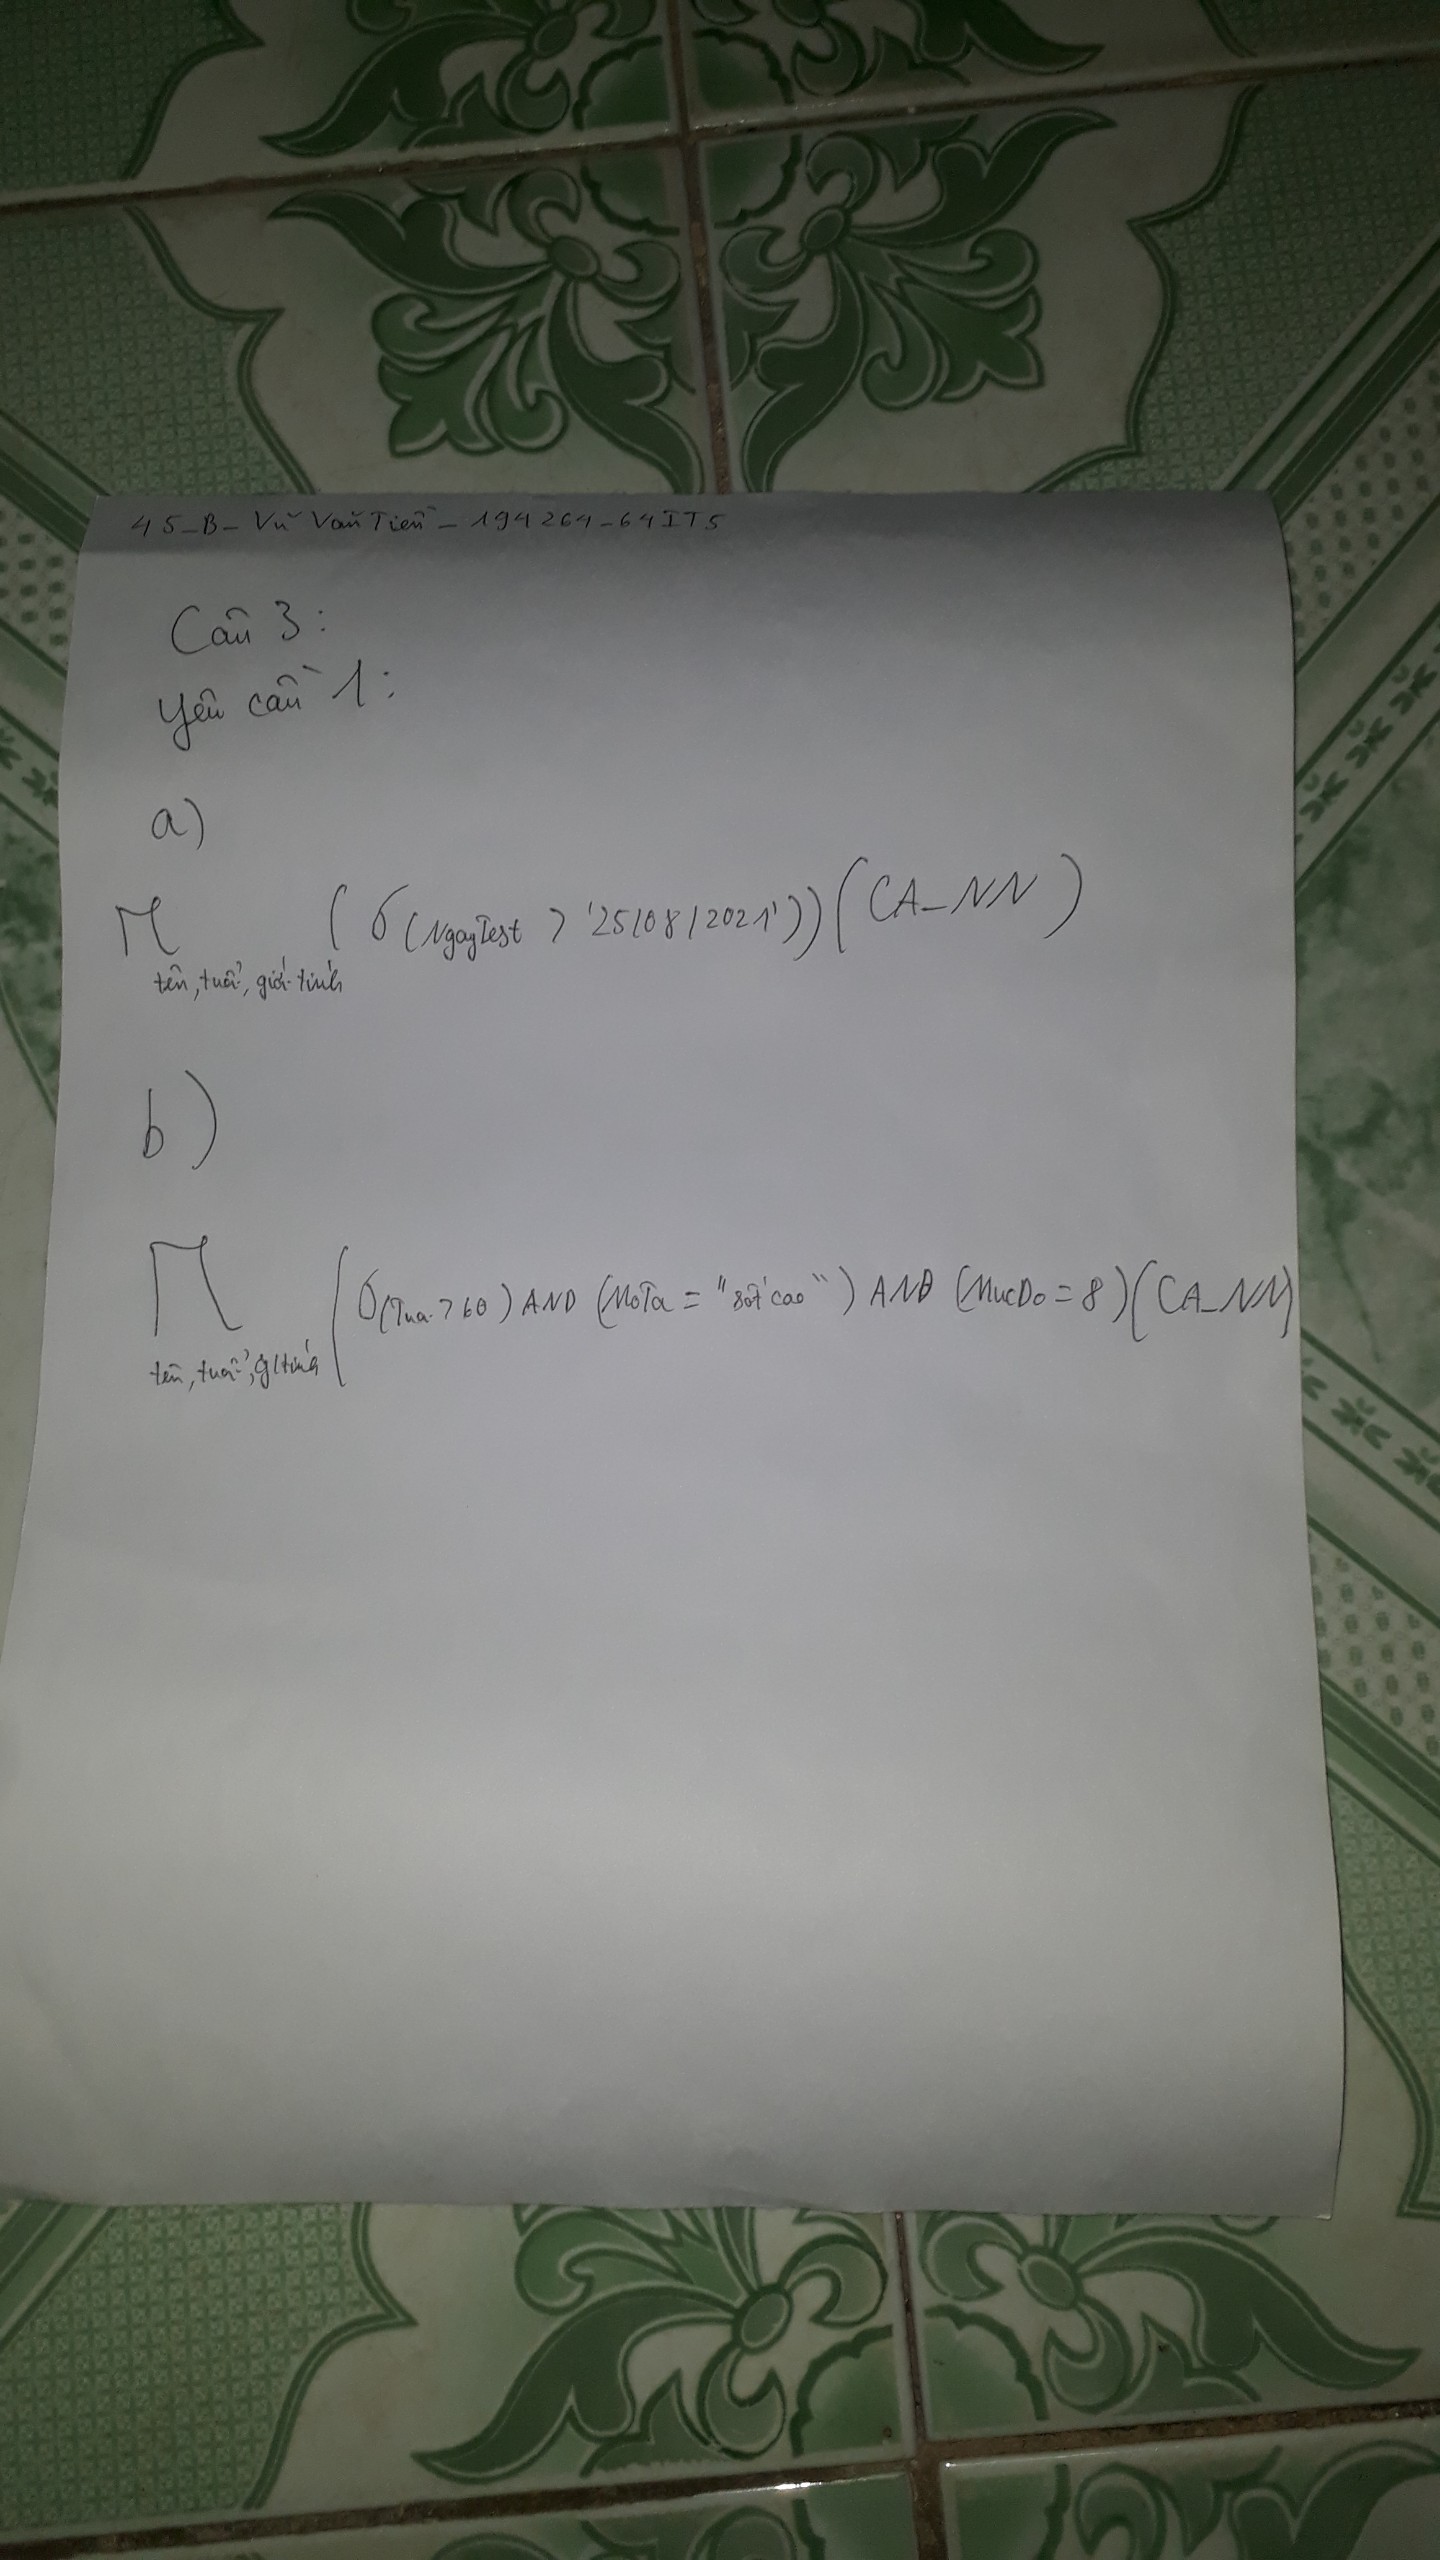 45_B_ Vũ Văn Tiến _ 194264_64IT5
Câu 3:
Yêu cầu 1:
a)
Π tên, tuổi, giới tính (σ(NgayTest > '25/08/2021'))(CA_NN)
b)
Π tên, tuổi, gitính (σ(Tua > 60) AND (MoTa = "sốt cao") AND (MucDo = 8)(CA_NN)